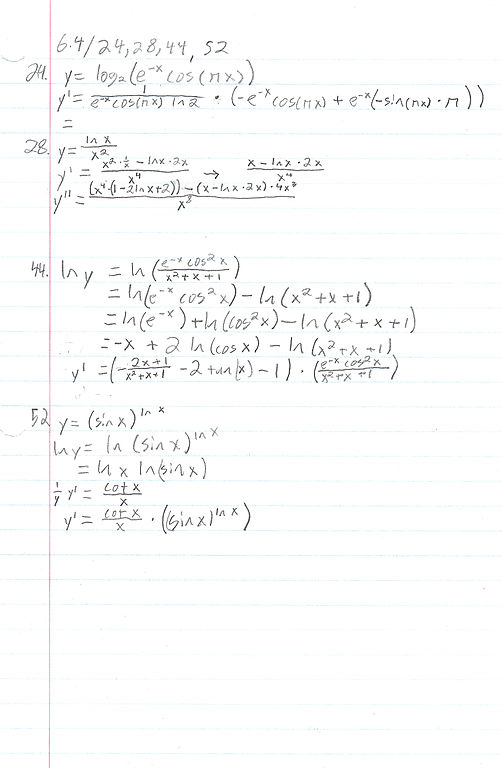 6.4/24,28,44,52
24. y = log₂(e^-x cos(πx))
y' = 1/(e^-x cos(πx) ln2) · (-e^-x cos(πx) + e^-x(-sin(πx) · π))
=
28. y = ln x/x²
y' = (x² · 1/x - lnx · 2x)/x⁴ → (x - lnx · 2x)/x⁴
y'' = ((x⁴ · (1-2lnx+2)) - (x - lnx · 2x) · 4x³)/x⁸
44. ln y = ln(e^-x cos²x/(x²+x+1))
= ln(e^-x cos²x) - ln(x²+x+1)
= ln(e^-x) + ln(cos²x) - ln(x²+x+1)
= -x + 2 ln(cosx) - ln(x²+x+1)
y' = (-(2x+1)/(x²+x+1) - 2 tan(x) - 1) · (e^-x cos²x/(x²+x+1))
52 y = (sin x)^ln x
lny = ln (sin x)^ln x
= ln x ln(sin x)
1/y y' = cotx/x
y' = cotx/x · ((sin x)^ln x)